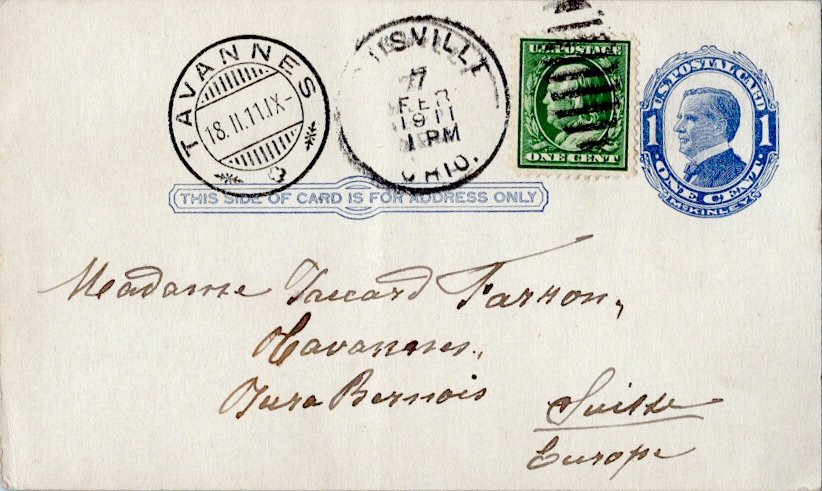 TAVANNES
18.II.11.IX-
7
FEB
1911
1 PM
OHIO.
U.S. POSTAGE
ONE CENT
U.S. POSTAL CARD
1 1
ONE CENT
McKINLEY
THIS SIDE OF CARD IS FOR ADDRESS ONLY
Madame Jaccard Farron,
Tavannes,
Jura Bernois
Suisse
Europe